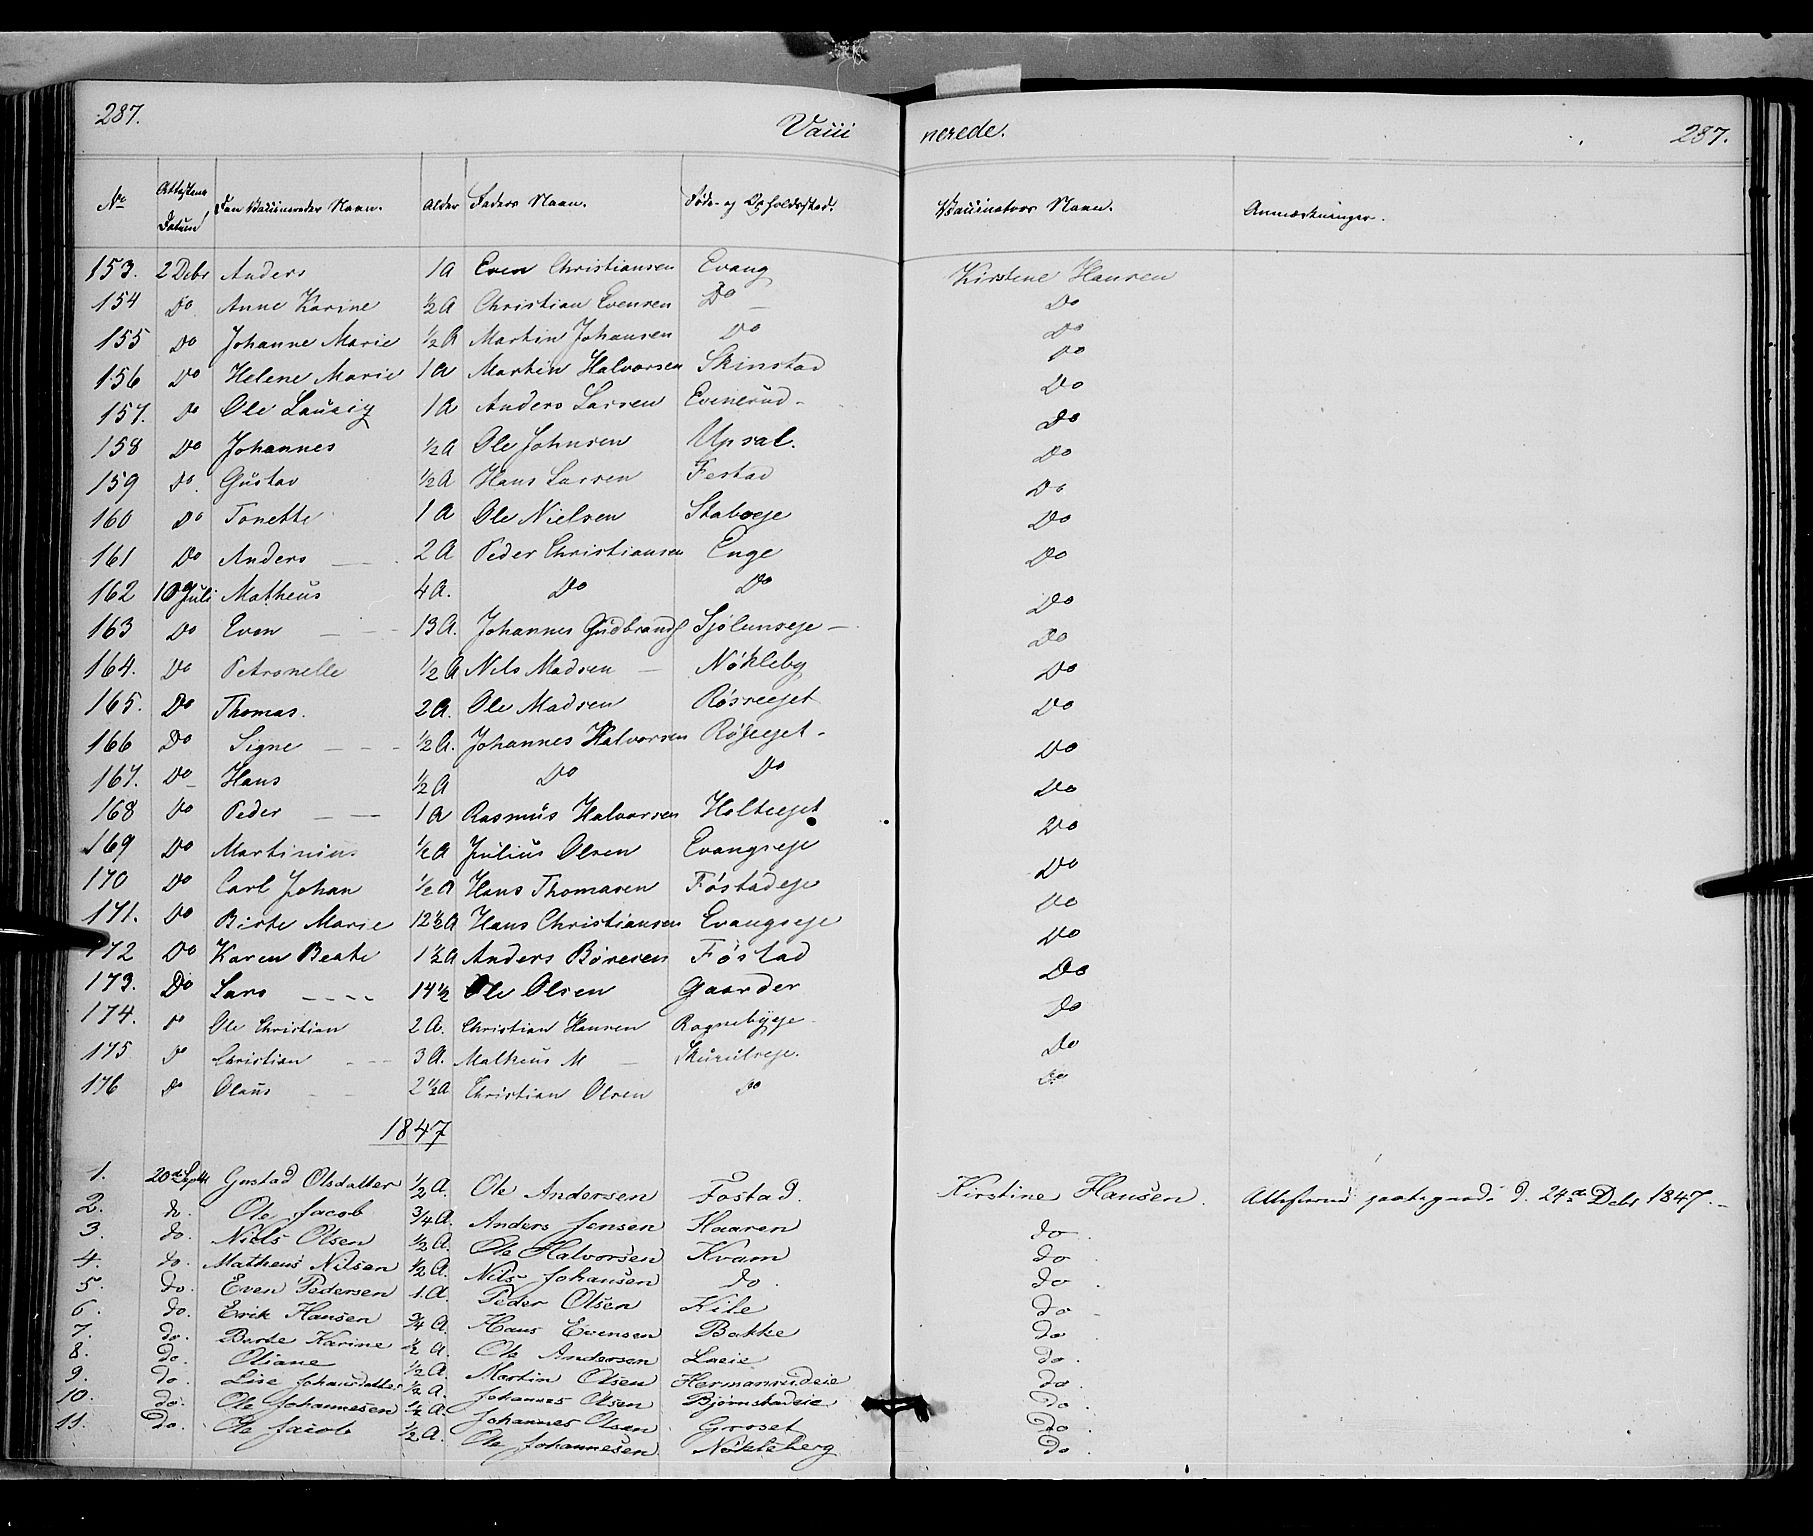 287. Vacci nerede. 287.
No Attestens Datum Den Vaccineredes Navn. Alder Faders Navn. Føde- og Opholdssted. Vaccinators Navn. Anmærkninger.
153. 2 Decbr Anders 1 A Even Christiansen Evang Kirstine Hansen
154 Do Anne Karine ½ A Christian Evensen Do — Do
155 Do Johanne Marie ½ A Martin Johansen Do Do
156 Do Helene Marie 1 A Martin Halvorsen Skinstad Do
157. Do Ole Lausig 1 A Anders Larsen Evenerud - Do
158 Do Johannes ½ A Ole Johnsen Upsal. Do
159 Do. Gustav ½ A Hans Larsen Festad Do
160 Do Tonette 1 A Ole Nielsen Staboeje Do
161 Do Anders — — 2 A Peder Christiansen Enge Do
162 10 Juli Matheus 4 A. Do Do Do
163 Do Even — — 13 A. Johannes Gudbrands Sjølunseje — Do
164. Do Petronelle ½ A Nils Madsen — Nøkleby Do
165. Do Thomas. 2 A. Ole Madsen Røsreejet Do
166 Do Signe — — - ½ A. Johannes Halvorsen Røseejet - Do
167. Do — Hans ½ A Do Do Do
168 Do Peder — — 1 A Rasmus Halvorsen Holteejet Do
169 Do Martinius ½ A Julius Olsen Evangseje Do
170 Do Carl Johan ½ A Hans Thomasen Føstadeje Do
171. Do Birte Marie 12½ A Hans Christiansen Evangseje Do
172 Do Karen Beate 1½ A Anders Børesen Føstad Do
173. Do Lars — — — — 14½ Ole Olsen Gaarder Do
174. Do Ole Christian 2 A. Christian Hansen Rognebyeje Do
175 Do Christian — — 3 A. Matheus M — Do
176 Do Olaus — — 2½ A Christian Olsen Do Do
1847
1. 20de Septb Gustad Olsdatter ½ A. Ole Andersen Fostad. Kirstine Hansen. d. 24de Debr 1847. —
2. do. Ole Jacob ¾ A. Anders Jensen Haaren do.
3. do. Niels Olsen ½ A. Ole Halvorsen Kvam do.
4. do. Matheus Nilsen ½ A. Nils Johansen do. do.
5. do. Even Pedersen 1. A. Peder Olsen Kile do -
6. do. Erik Hansen ¾ A. Hans Evensen Bakke do.
7. do. Berte Karine ½ A. Ole Andersen Laeie do.
8. do. Oliane ½ A. Martin Olsen Hermanrudeie do.
9. do. Lise Johansdatter ½ A. Johannes Olsen Bjørnstadeie do.
10. do. Ole Johannesen ½ A. Johannes Olsen Groset do.
11. do. Ole Jacob ½ A. Ole Johannesen Nøkleberg do.